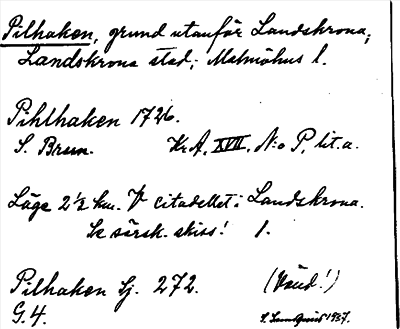 Pilhaken, grund utanför Landskrona,
Landskrona stad; Malmöhus l.
Pihlhaken 1726.
S. Brun. Kr.A, XVII, N:o P, lit. a.
Läge 2 ½ km. V citadellet i Landskrona.
Se särsk. skiss! 1.
Pilhaken Sj. 272. (Vänd!)
G. 4. 1937.